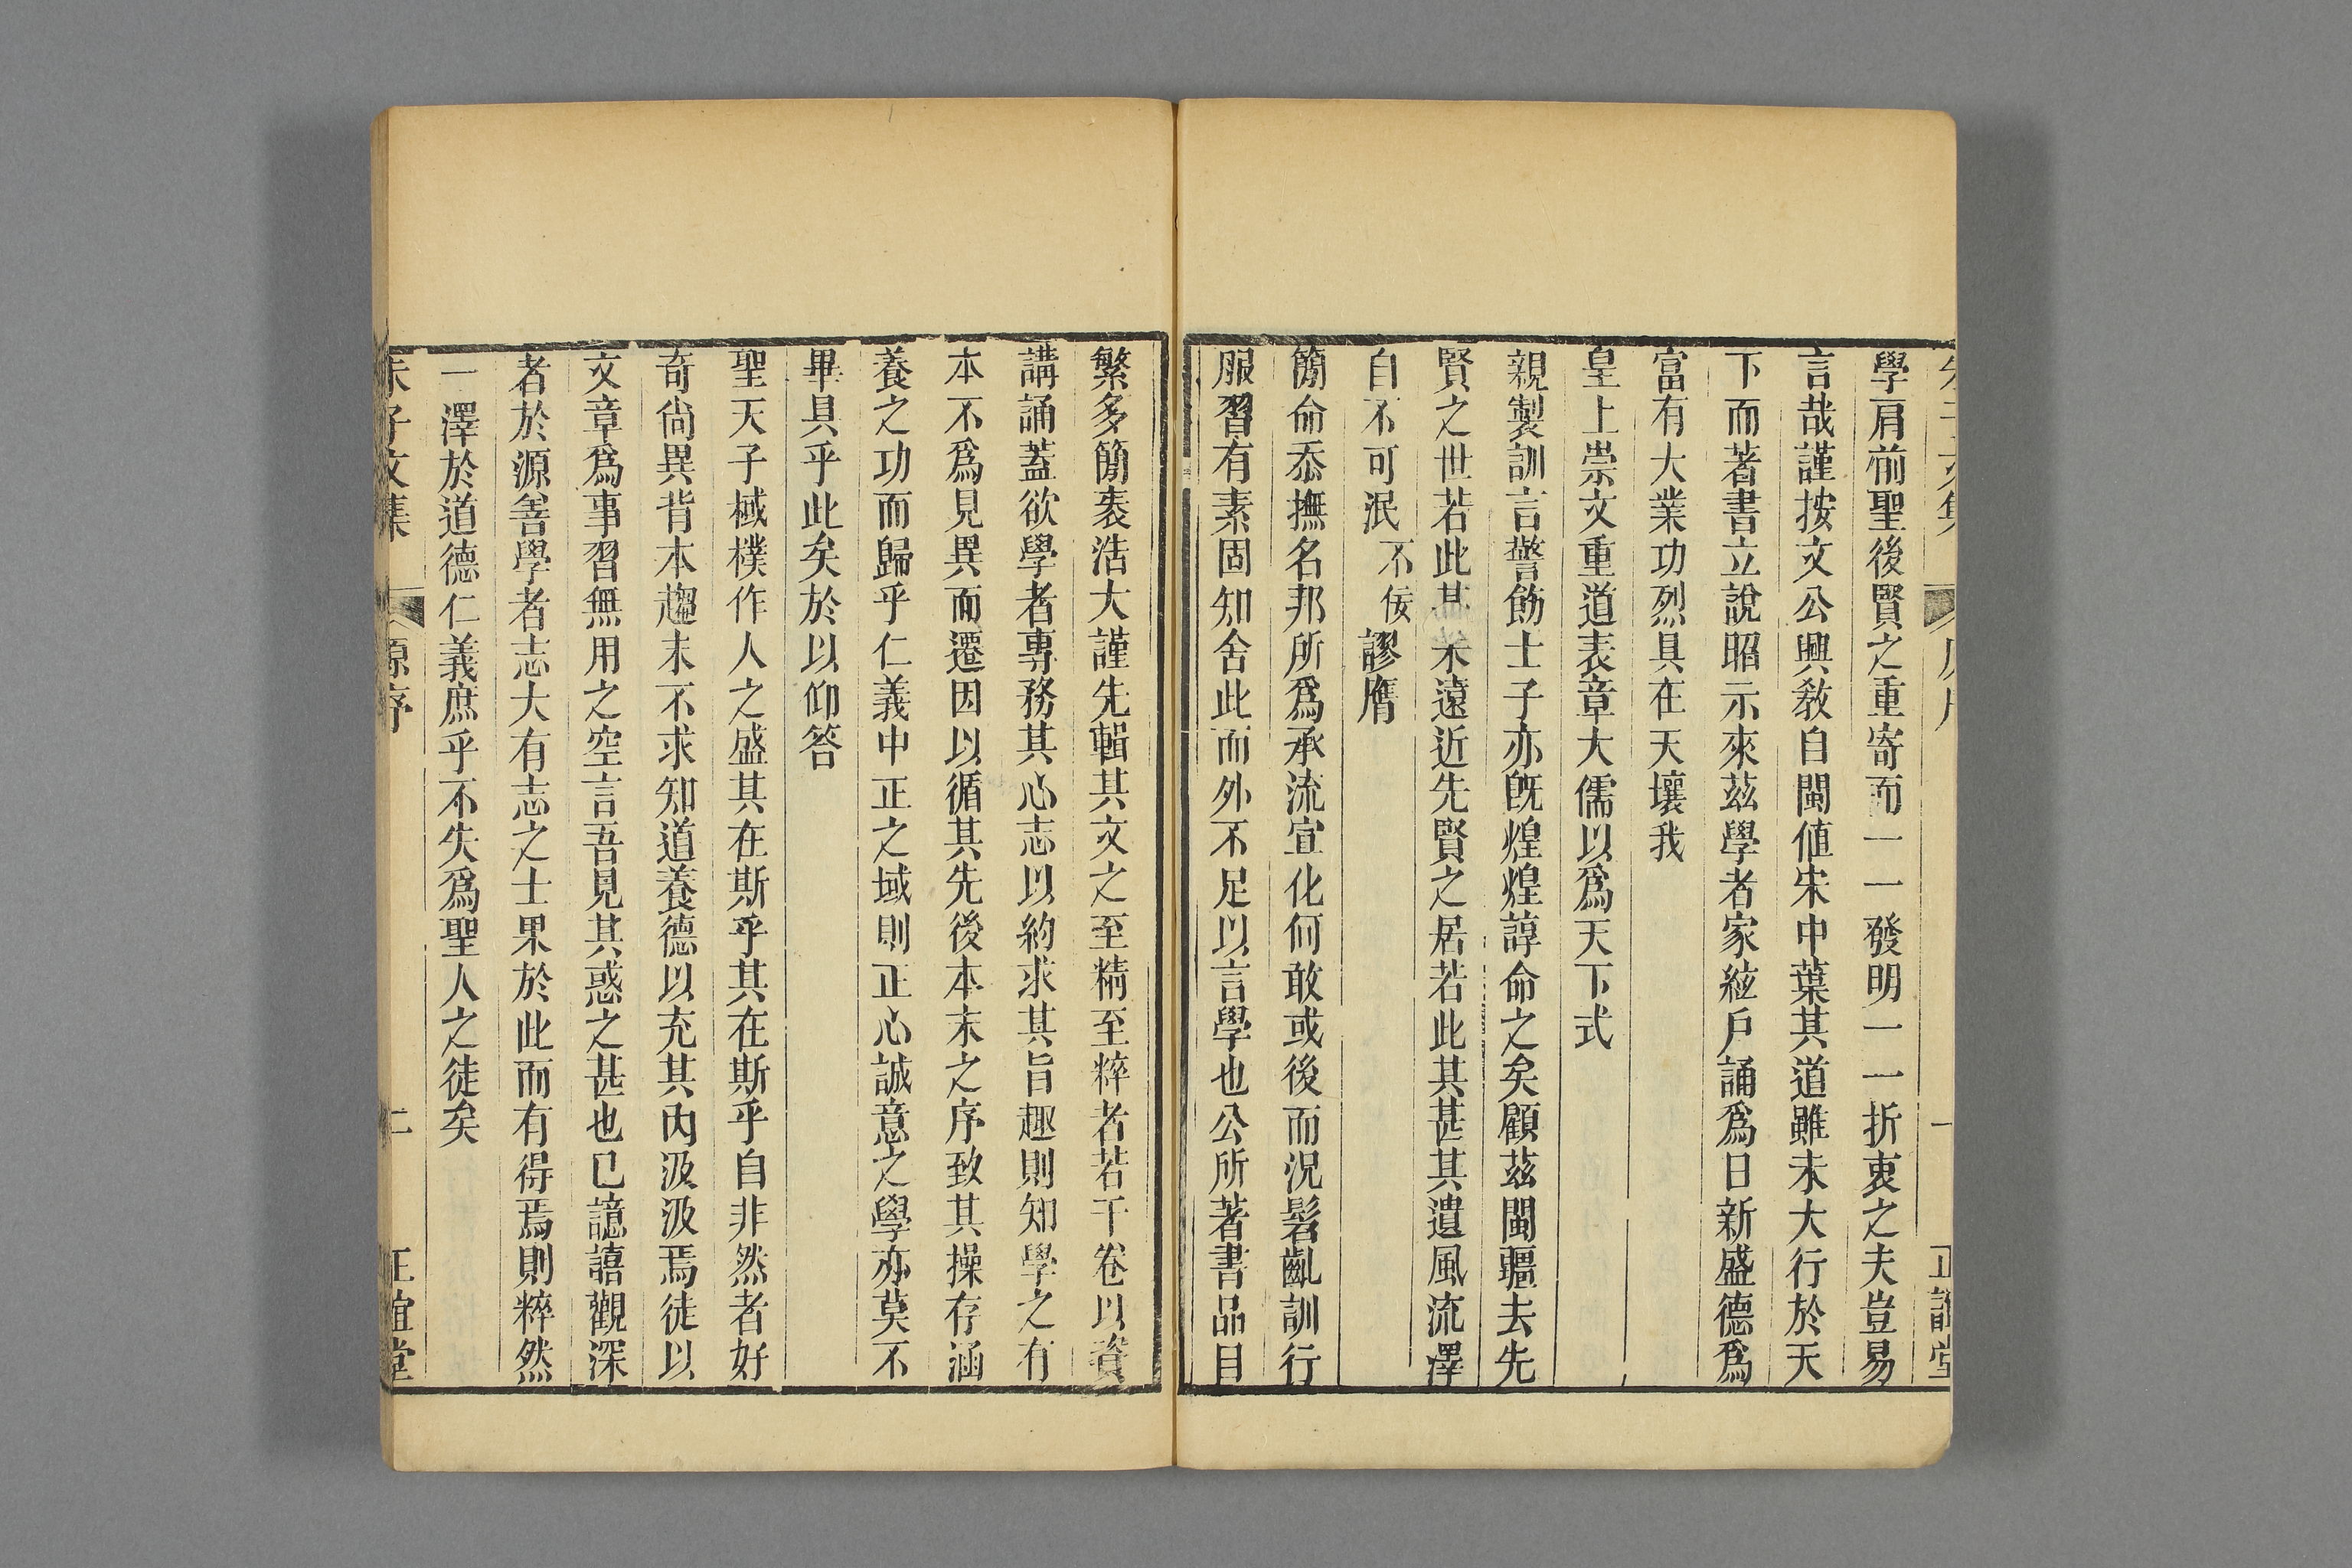 學肩前聖後賢之重寄而一一發明一一折衷之夫豈易
言哉謹按文公興敎自閩値宋中葉其道雖未大行於天
下而著書立說昭示來茲學者家絃戶誦爲日新盛德爲
富有大業功烈具在天壤我
皇上崇文重道表章大儒以爲天下式
親製訓言警飭士子亦旣煌煌諄命之矣顧茲閩疆去先
賢之世若此其未遠近先賢之居若此其甚其遺風流澤
自不可泯不佞謬膺
簡命忝撫名邦所爲承流宣化何敢或後而況髫齓訓行
服習有素固知舍此而外不足以言學也公所著書品目
繁多簡袠浩大謹先輯其文之至精至粹者若干卷以資
講誦蓋欲學者專務其心志以約求其旨趣則知學之有
本不爲見異而遷因以循其先後本末之序致其操存涵
養之功而歸乎仁義中正之域則正心誠意之學亦莫不
畢具乎此矣於以仰答
聖天子棫樸作人之盛其在斯乎其在斯乎自非然者好
奇尙異背本趨末不求知道養德以充其內汲汲焉徒以
文章爲事習無用之空言吾見其惑之甚也已譩譆觀深
者於源善學者志大有志之士果於此而有得焉則粹然
一澤於道德仁義庶乎不失爲聖人之徒矣
朱子文集 原序 二 正誼堂